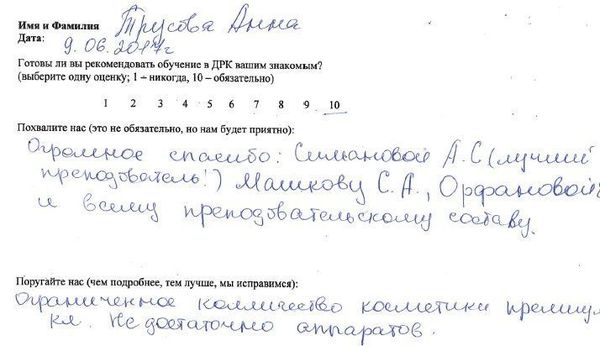 Имя и Фамилия Трусова Анна
Дата: 9.06.2017г
Готовы ли вы рекомендовать обучение в ДРК вашим знакомым?
(выберите одну оценку; 1 – никогда, 10 – обязательно)
1 2 3 4 5 6 7 8 9 10
Похвалите нас (это не обязательно, но нам будет приятно):
Огромное спасибо: Симановой А.С (лучший
преподователь!) Машкову С.А., Орфановой
и всему преподовательскому составу.
Поругайте нас (чем подробнее, тем лучше, мы исправимся):
Ограниченное колличество косметики премиум
кл. Не достаточно аппаратов.